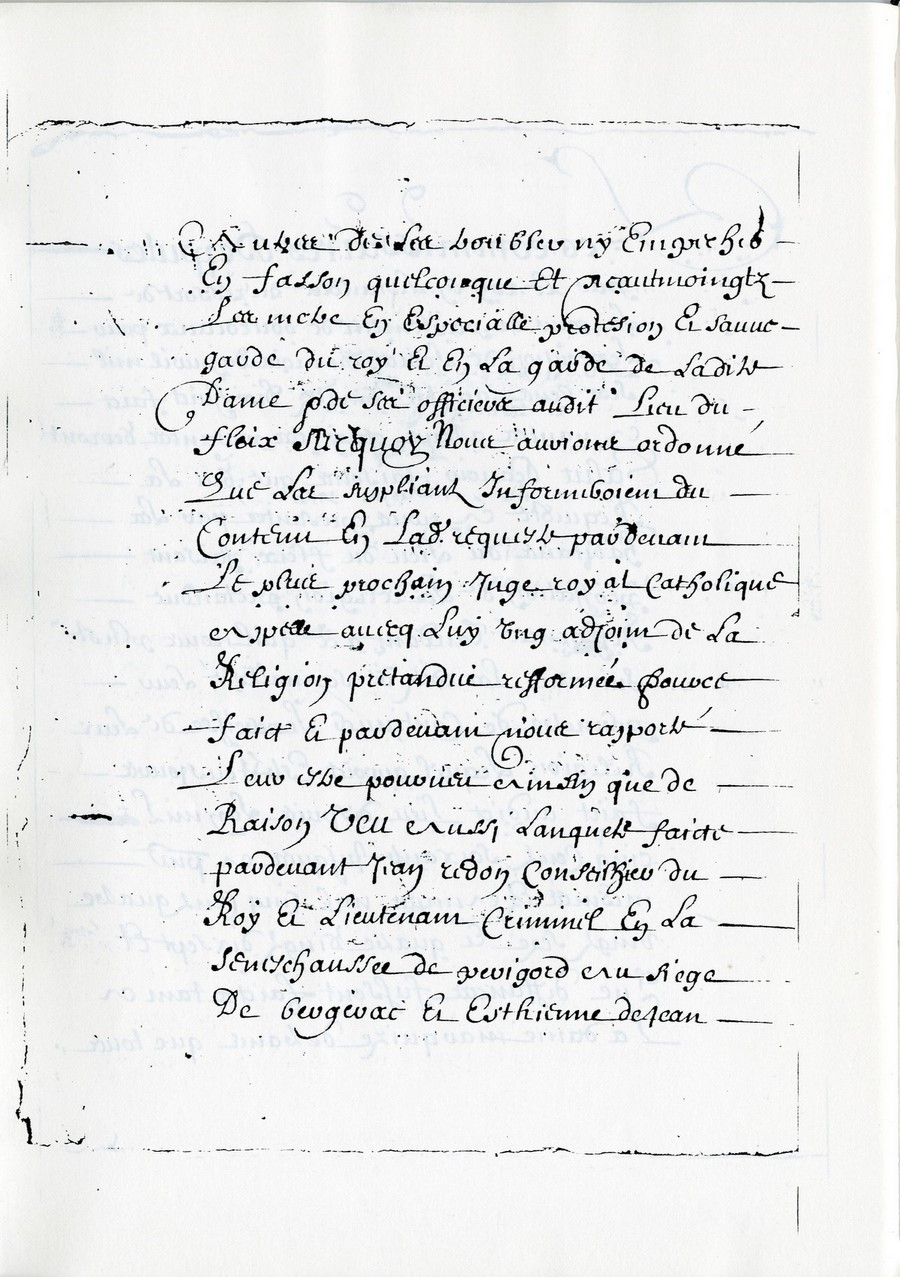 Autres de les troubler ny Empeches
En fasson quelconque Et neautmoingtz
Les mectre En Especialle protesion Et sauve
garde du roy Et En La garde de Ladite
Dame de ses officiers audit Lieu du
fleix Nous aurions ordonné
Que Les suppliant Informeroient du
Contenu En Lad. requeste pardevant
Le plus prochain Juge royal Catholique
appellé avecq Luy Ung adjoint de La
Religion pretandue refformée pource
faict Et pardevant nous rapporté
Leur estre pourveu ainsin que de
Raison Veu aussi Lanqueste faicte
pardevant Jean redon Conseilher du
Roy Et Lieutenant Criminel En La
seneschaussee de perigord au siege
De bergerac Et Esthienne deJean